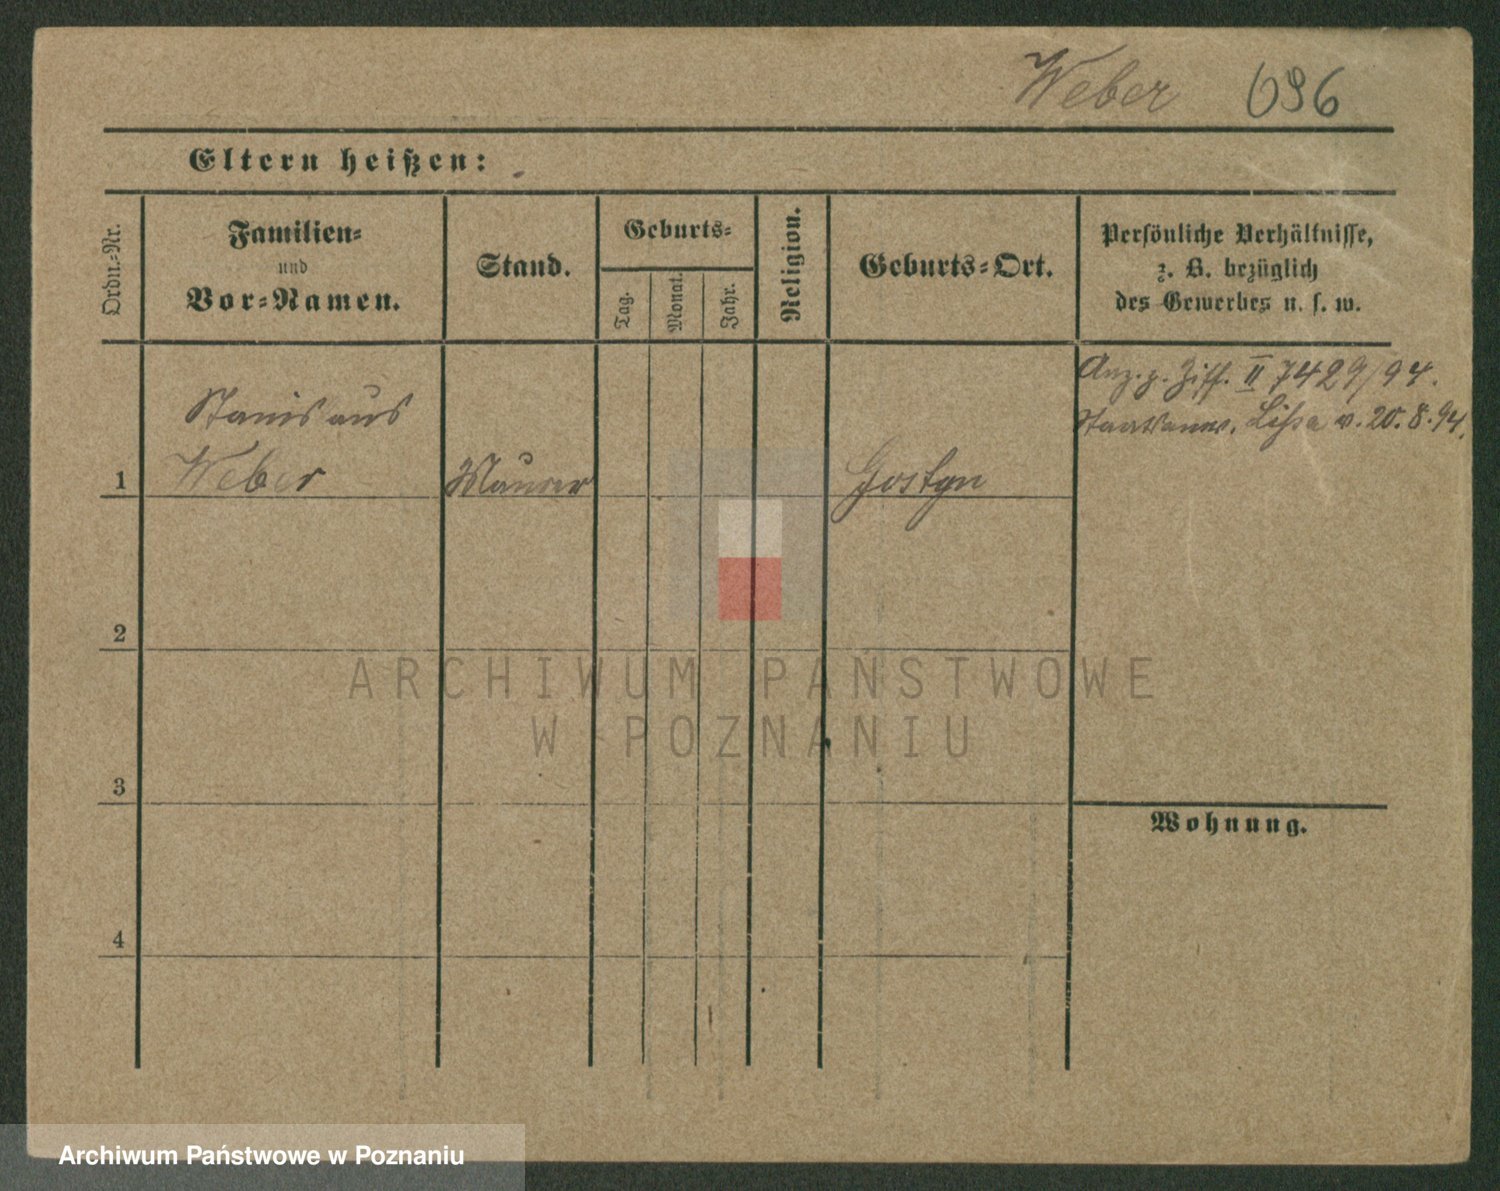 Weber 696
Eltern heißen:
Ordn.-Nr.
Familien-
und
Vor-Namen.
Stand.
Geburts-
Tag.
Monat.
Jahr.
Religion.
Geburts-Ort.
Persönliche Verhältnisse,
z. B. bezüglich
des Gewerbes u. s. w.
Anz. z. Ziff. II 7429/94.
Staatsanw. Lissa v. 20.8.94.
Stanislaus
1 Weber Maurer Gostyn
2
3
4
Wohnung.
ARCHIWUM PAŃSTWOWE
W POZNANIU
Archiwum Państwowe w Poznaniu